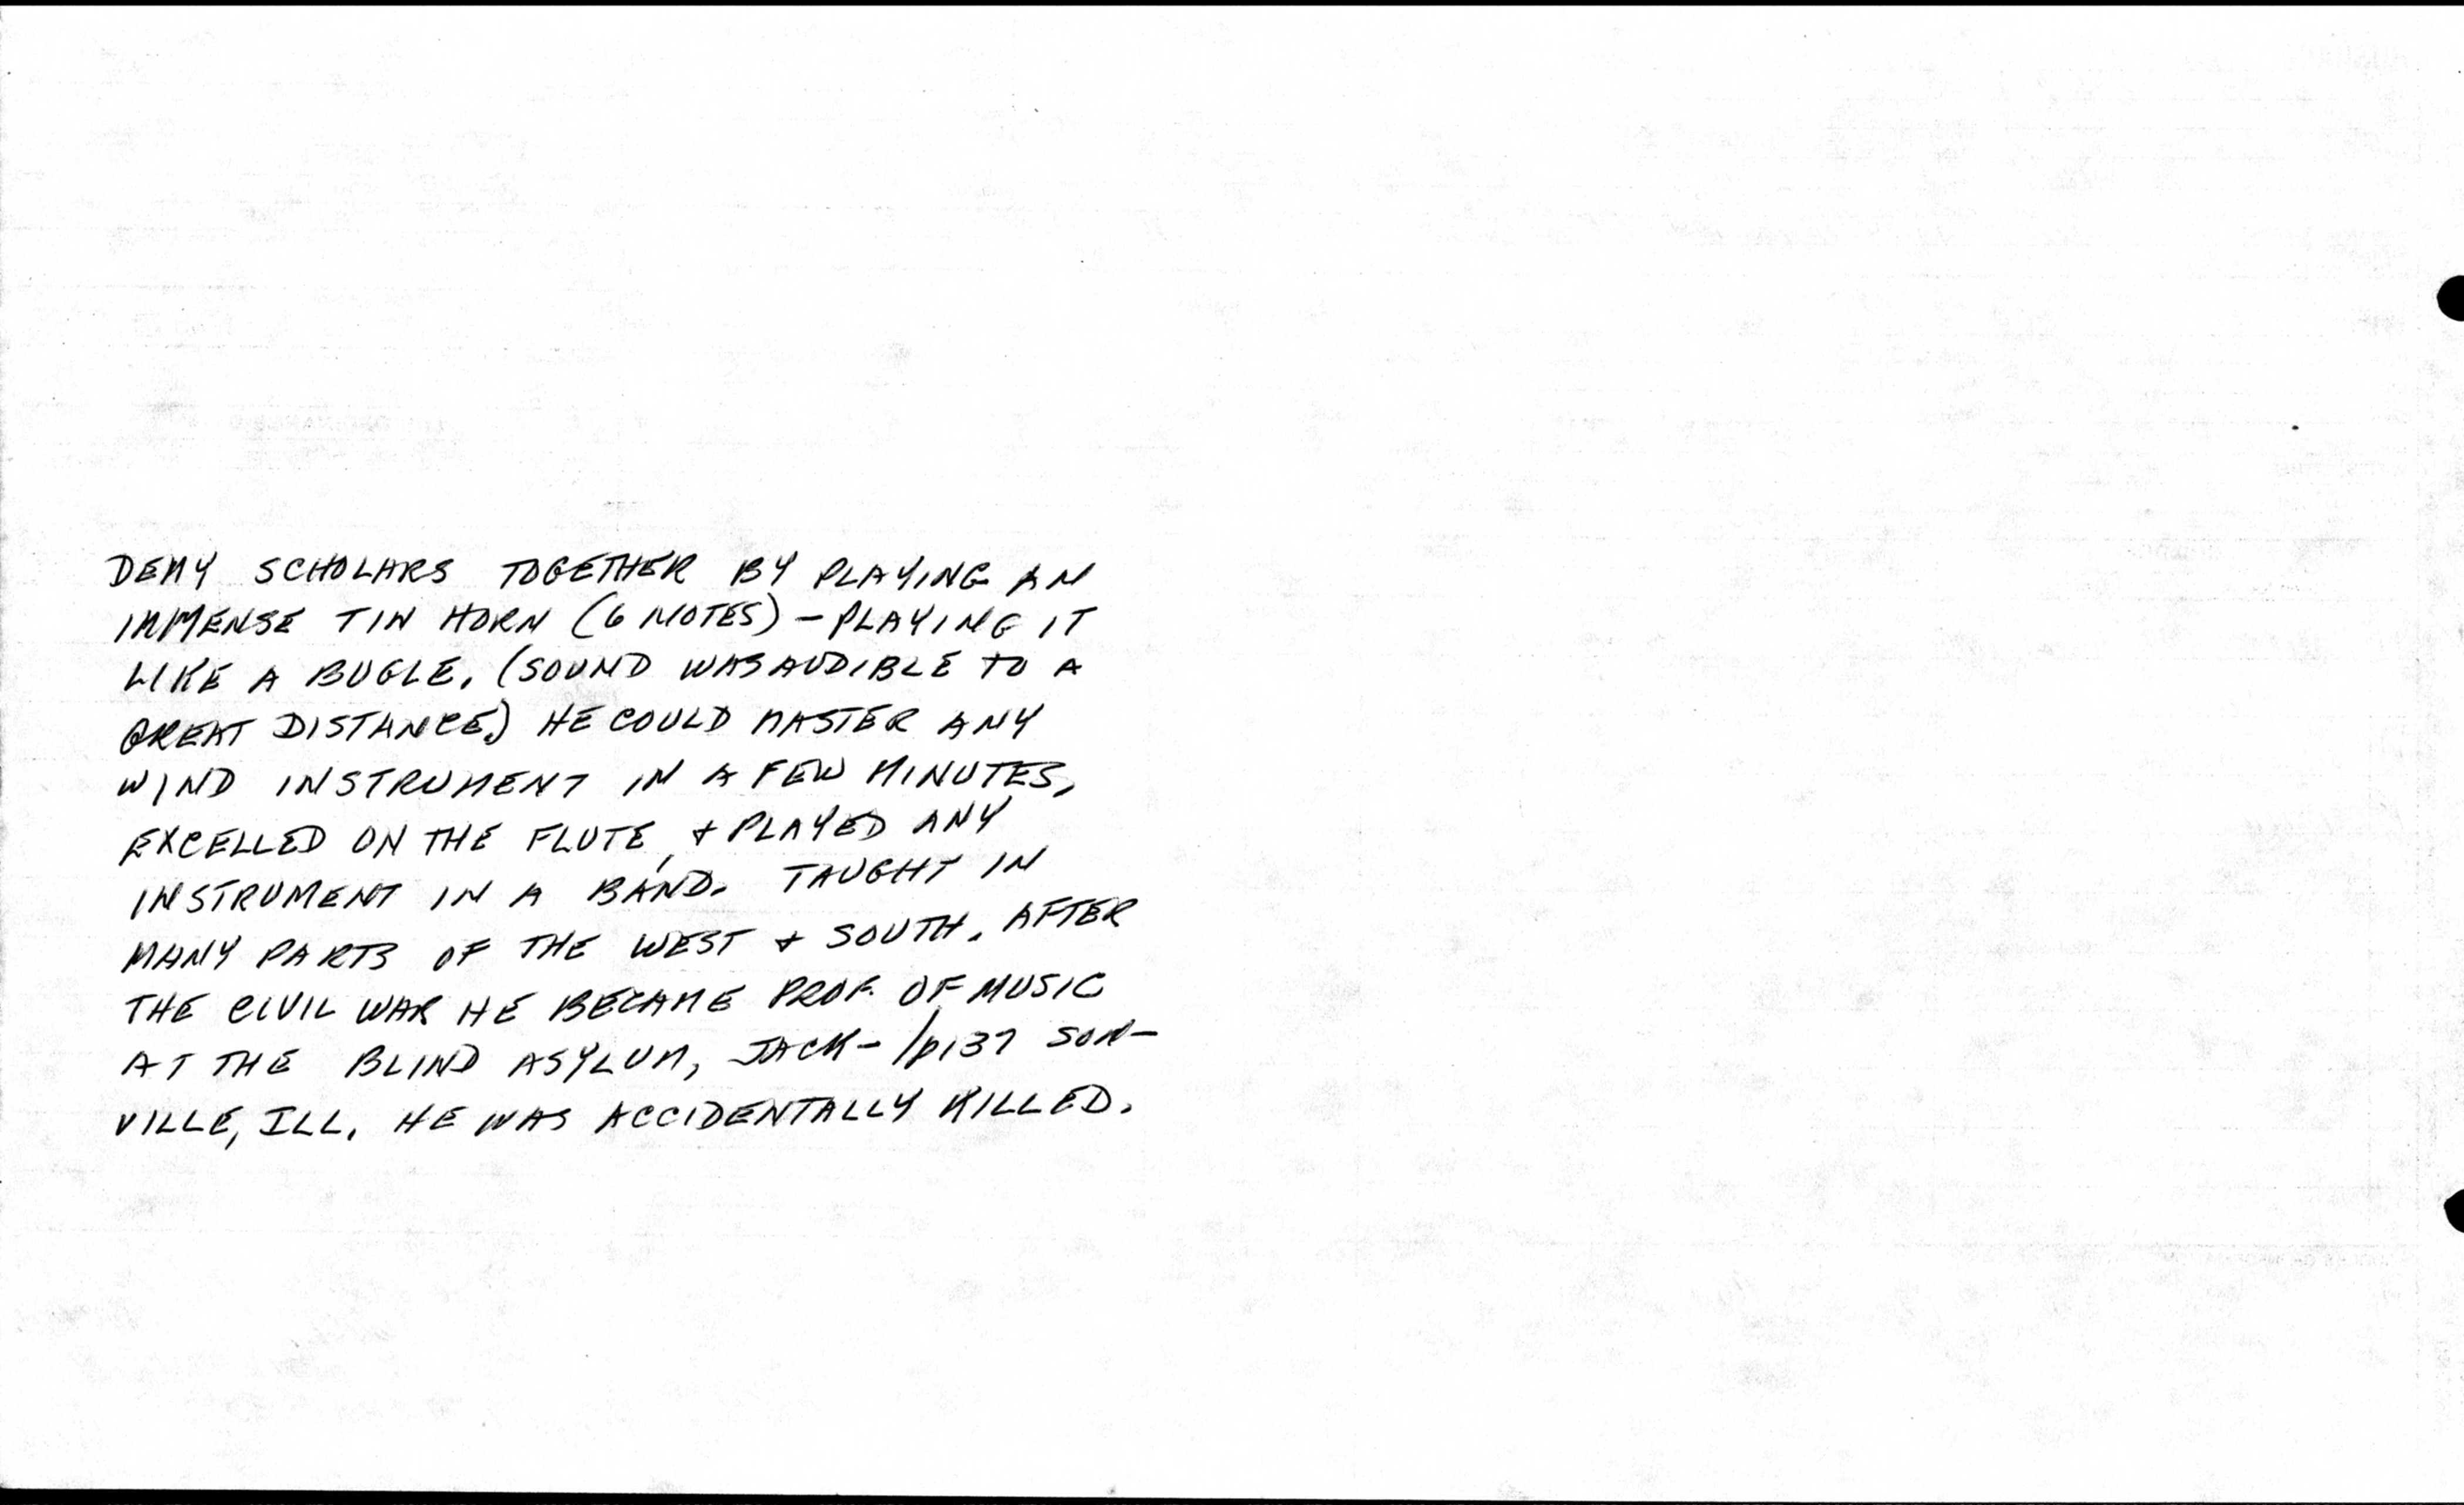 DEMY SCHOLARS TOGETHER BY PLAYING AN
IMMENSE TIN HORN (6 NOTES) - PLAYING IT
LIKE A BUGLE. (SOUND WAS AUDIBLE TO A
GREAT DISTANCE.) HE COULD MASTER ANY
WIND INSTRUMENT IN A FEW MINUTES,
EXCELLED ON THE FLUTE, + PLAYED ANY
INSTRUMENT IN A BAND. TAUGHT IN
MANY PARTS OF THE WEST + SOUTH. AFTER
THE CIVIL WAR HE BECAME PROF. OF MUSIC
AT THE BLIND ASYLUM, JACK- /p137 SON-
VILLE, ILL. HE WAS ACCIDENTALLY KILLED.